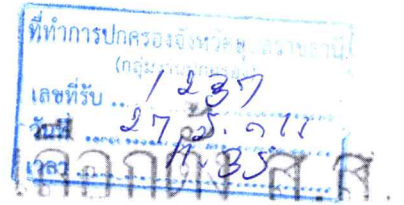 ที่ทำการปกครองจังหวัดอุบลราชธานี
(กลุ่มงานปกครอง)
เลขที่รับ 1237
วันที่ 27
เวลา 11.35
เลือกตั้ง ส.ส.